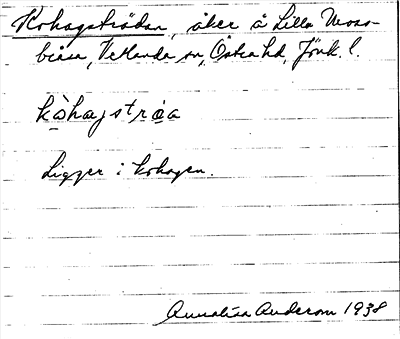 Kohagsträdan, åker å Lilla Moss-
bräsa, Vetlanda sn, Östra hd, Jönk. l.
kòhagstrạa
Ligger i kohagen.
Annalisa Anderson 1938